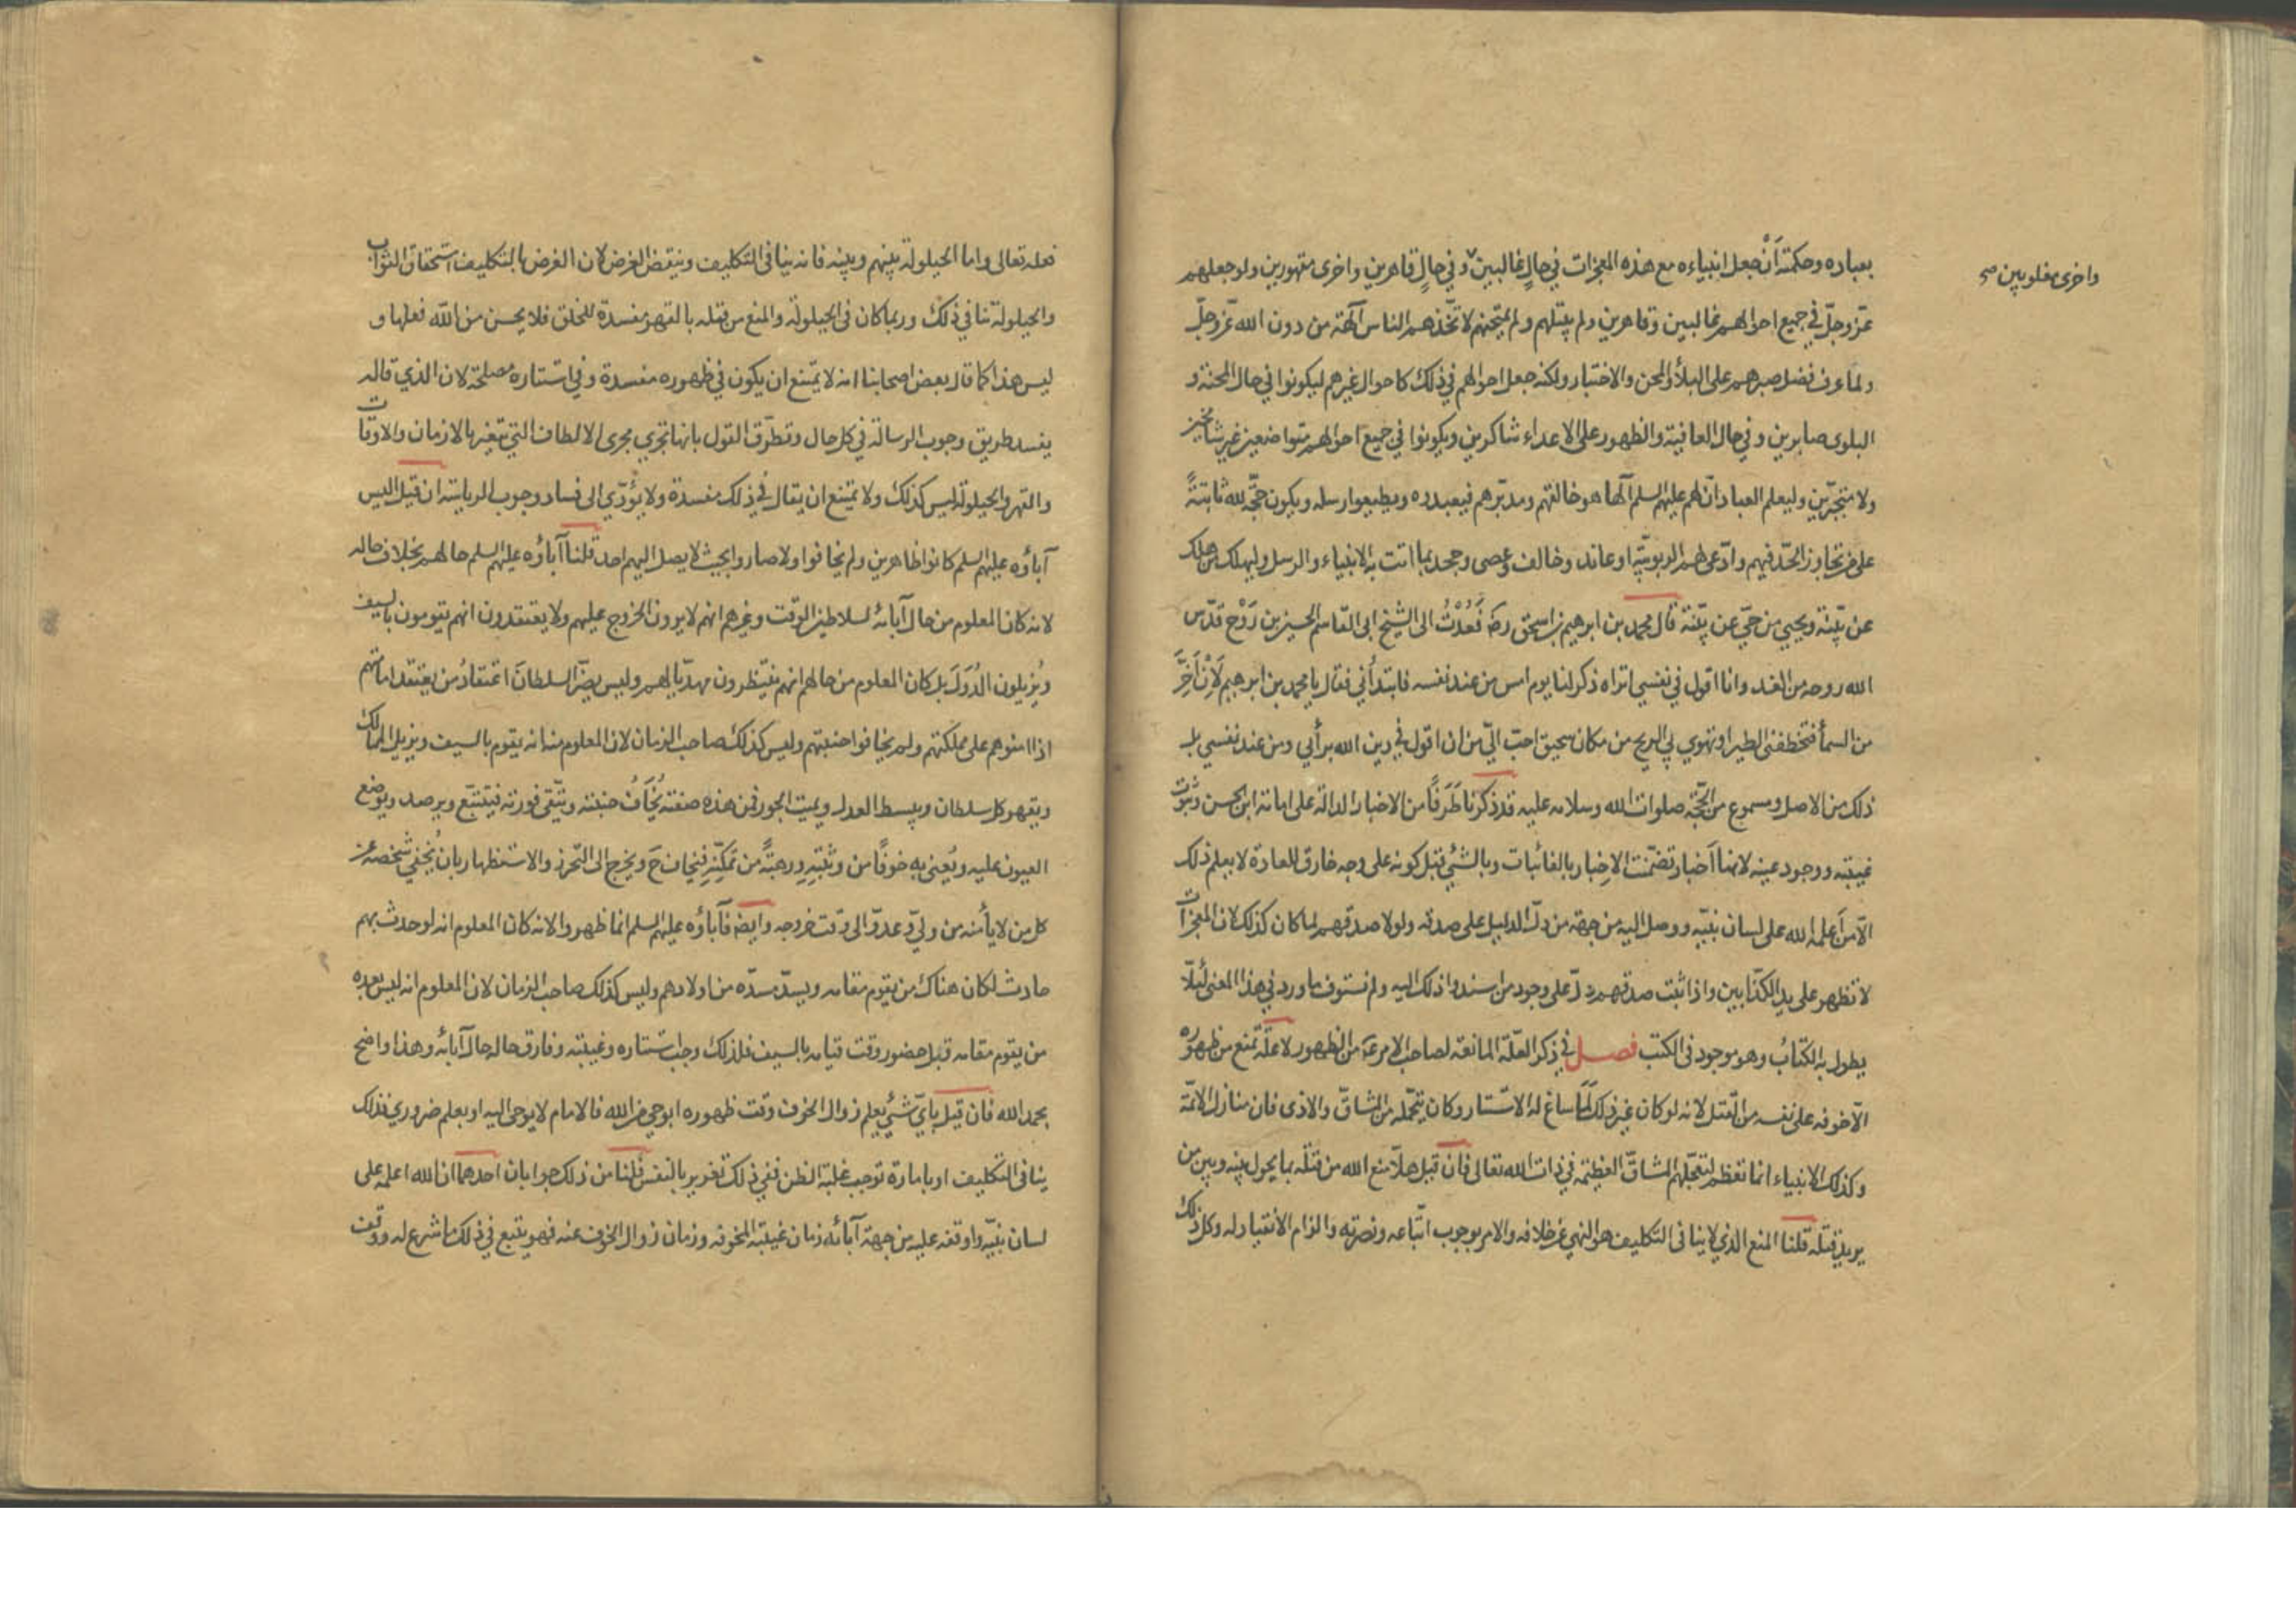 بعباده وحكمته أَنْ جعل انبياءه مع هذه المعجزات في حالٍ غالبين و في حالٍ قاهرين واخرى مقهورين ولو جعلهم
واخرى مغلوبين صح
عزّ وجلّ في جميع احوالهم غالبين وقاهرين ولم يبتلهم ولم يمتحنهم لاتّخذهم الناس آلهة من دون الله عزّ وجلّ
ولما عرف فضل صبرهم على البلأ والمحن والاختبار ولكنه جعل احوالهم في ذلك كاحوال غيرهم ليكونوا في حال المحنة و
البلوى صابرين و في حال العافية والظهور على الاعداء شاكرين ويكونوا في جميع احوالهم متواضعين غير شامخين
ولا متجبّرين وليعلم العباد انّ لهم عليهم السلم آلها هو خالقهم ومدبّرهم فيعبدوه ويطيعوا رسله ويكون حجّة لله ثابتةً
على من تجاوز الحدّ فيهم وادّعى لهم الربوبيّة او عاند وخالف وعصى وجحد بما اتت به الانبياء والرسل وليهلك من هلك
عن بيّنة ويحيى من حيّ عن بيّنة قال محمد بن ابرهيم بن اسحق رضَ فَعُدْتُ الى الشيخ ابي القاسم الحسين بن رَوْح قدّس
الله روحه من الغد وانا اقول في نفسي اتراه ذكر لنا يوم امس من عند نفسه فابتدأني فقال يا محمد بن ابرهيم لَأَنْ أَخِرَّ
من السمأ فتخطفني الطير او تهوي بي الريح من مكان سحيق احبّ اليّ من ان اقول في دين الله برأيي ومن عند نفسي بل
ذلك من الاصل ومسموع من الحجّة صلوات الله وسلامه عليه قد ذكرنا طَرَفًا من الاخبار الدالة على امامة ابن الحسن وثبوت
غيبته ووجود عينه لانها أَخبار تضمّنت الاِخبار بالغائبات وبالشئ قبل كونه على وجه خارق للعادة لا يعلم ذلك
الّا من أَعلمه الله على لسان نبيّه ووصل اليه من جهة من دلّ الدليل على صدقه ولولا صدقهم لما كان كذلك لان المعجزات
لا تظهر على يد الكذّابين واذا ثبت صدقهم دلّ على وجود من اسندوا ذلك اليه ولم نستوف ما ورد في هذا المعنى لئلّا
يطول به الكتابُ وهو موجود في الكتب فصل في ذكر العلّة المانعة لصاحب الامر عَ من الظهور لا علّة تمنع من ظهوره
الّا خوفه على نفسه من القتل لانه لو كان غير ذلك لَمَا ساغ له الاستتار وكان يتحمّل المشاقّ والاذى فان منازل الائمّة
وكذلك الانبياء انما تعظم لتحمّلهم المشاقّ العظيمة في ذات الله تعالى فان قيل هلّا منع الله من قتله بما يحول بينه وبين من
يريد قتله قلنا المنع الذي لا ينافي التكليف هو النهي عن خلافه والامر بوجوب اتّباعه ونصرته والزام الانقياد له وكل ذلك
فعله تعالى واما الحيلولة بينهم وبينه فانه ينافى التكليف وينقض الغرض لان الغرض بالتكليف استحقاق الثواب
والحيلولة تنافي ذلك وربما كان فى الحيلولة والمنع من قتله بالقهر مفسدة للخلق فلا يحسن من الله فعلها و
ليس هذا كما قال بعض اصحابنا انه لا يمتنع ان يكون في ظهوره مفسدة وفي استتاره مصلحة لان الذي قاله
يفسد طريق وجوب الرسالة في كل حال وتطرّق القول بانها تجري مجرى الالطاف التي تتغير بالازمان والاوقات
والقهر والحيلولة ليس كذلك ولا يمتنع ان يقال في ذلك مفسدة ولا يؤدّي الى فساد وجوب الرياسة ان قيل اليس
آباؤه عليهم السلم كانوا ظاهرين ولم يخافوا ولا صاروا بحيث لا يصل اليهم احد قلنا آباؤه عليهم السلم حالهم بخلاف حاله
لانه كان المعلوم من حال آبائه لسلاطين الوقت وغيرهم انهم لا يرون الخروج عليهم ولا يعتقدون انهم يقومون بالسيف
ويُزيلون الدُوَلَ بل كان المعلوم من حالهم انهم ينتظرون مهديّا لهم وليس يضرّ السلطانَ اعتقادُ من يعتقد امامتهم
اذا امنوهم على مملكتهم ولم يخافوا جنبتهم وليس كذلك صاحب الزمان لان المعلوم منه انه يقوم بالسيف ويزيل الممالك
ويقهر كل سلطان ويبسط العدل ويميت الجور فمن هذه صفته يُخَافُ جنبته ويتّقى فورته فيتتبّع ويرصد ويوضع
العيون عليه ويُعنى به خوفًا من وثبتِهِ ورهبةً من تمكّنِهِ فيخاف حَ ويخرج الى التحرز والاستظهار بان يُخفي شخصه عن
كل من لا يأمنه من وليّ وعدوّ الى وقت خروجه وايضا فآباؤه عليهم السلم انما ظهروا لانه كان المعلوم انه لو حدث بهم
حادث لكان هناك من يقوم مقامه ويسدّ مسدّه من اولادهم وليس كذلك صاحب الزمان لان المعلوم انه ليس بعده
من يقوم مقامه قبل حضور وقت قيامه بالسيف فلذلك وجب استتاره وغيبته وفارق حاله حال آبائه وهذا واضح
بحمد الله فان قيل بايّ شئٍ يعلم زوال الخوف وقت ظهوره ابوحي من الله فالامام لا يوحى اليه او بعلم ضروري فذلك
ينافى التكليف او بامارة توجب غلبة الظن ففي ذلك تغرير بالنفس قلنا من ذلك جوابان احدهما ان الله اعلمه على
لسان نبيّه واوقفه عليه من جهة آبائه زمان غيبته المخوفه وزمان زوال الخوف عنه فهو يتبع في ذلك ما شرع له ووقف